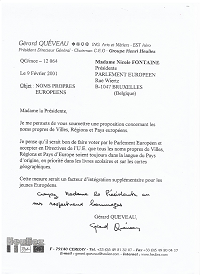 Gérard QUÉVEAU ING. Arts et Métiers - EST Arles
Président Directeur Général - Chairman C.E.O - Groupe Henri Heuliez
QG/mce - 12 064
Le 9 Février 2001
Objet: NOMS PROPRES
EUROPEENS
Madame Nicole FONTAINE
Présidente
PARLEMENT EUROPEEN
Rue Wiertz
B-1047 BRUXELLES
(Belgique)
Madame la Présidente,
Je me permets de vous soumettre une proposition concernant les
noms propres de Villes, Régions et Pays européens.
Je pense qu'il serait bon de faire voter par le Parlement Européen et
accepter en Directives de l'U.E. que tous les noms propres de Villes,
Régions et Pays d'Europe soient toujours dans la langue du Pays
d'origine, en priorité dans les livres scolaires et sur les cartes
géographiques.
Cette mesure serait un facteur d'intégration supplémentaire pour les
jeunes Européens.
Croyez Madame la Présidente en
mes respectueux hommages
Gérard QUEVEAU,